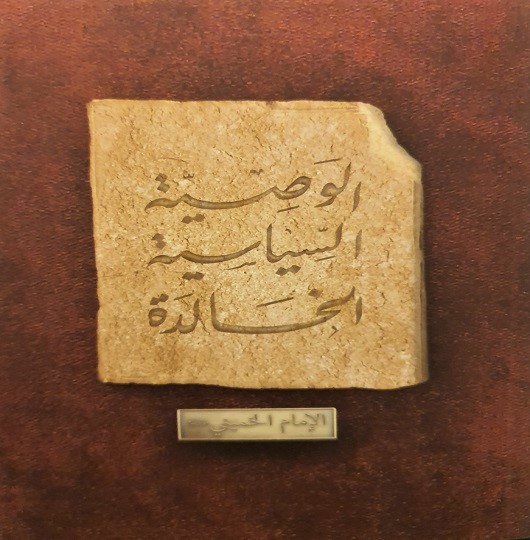 الوَصِيَّة
السِّيَاسِية
الخَالدَة
الإمام الخميني